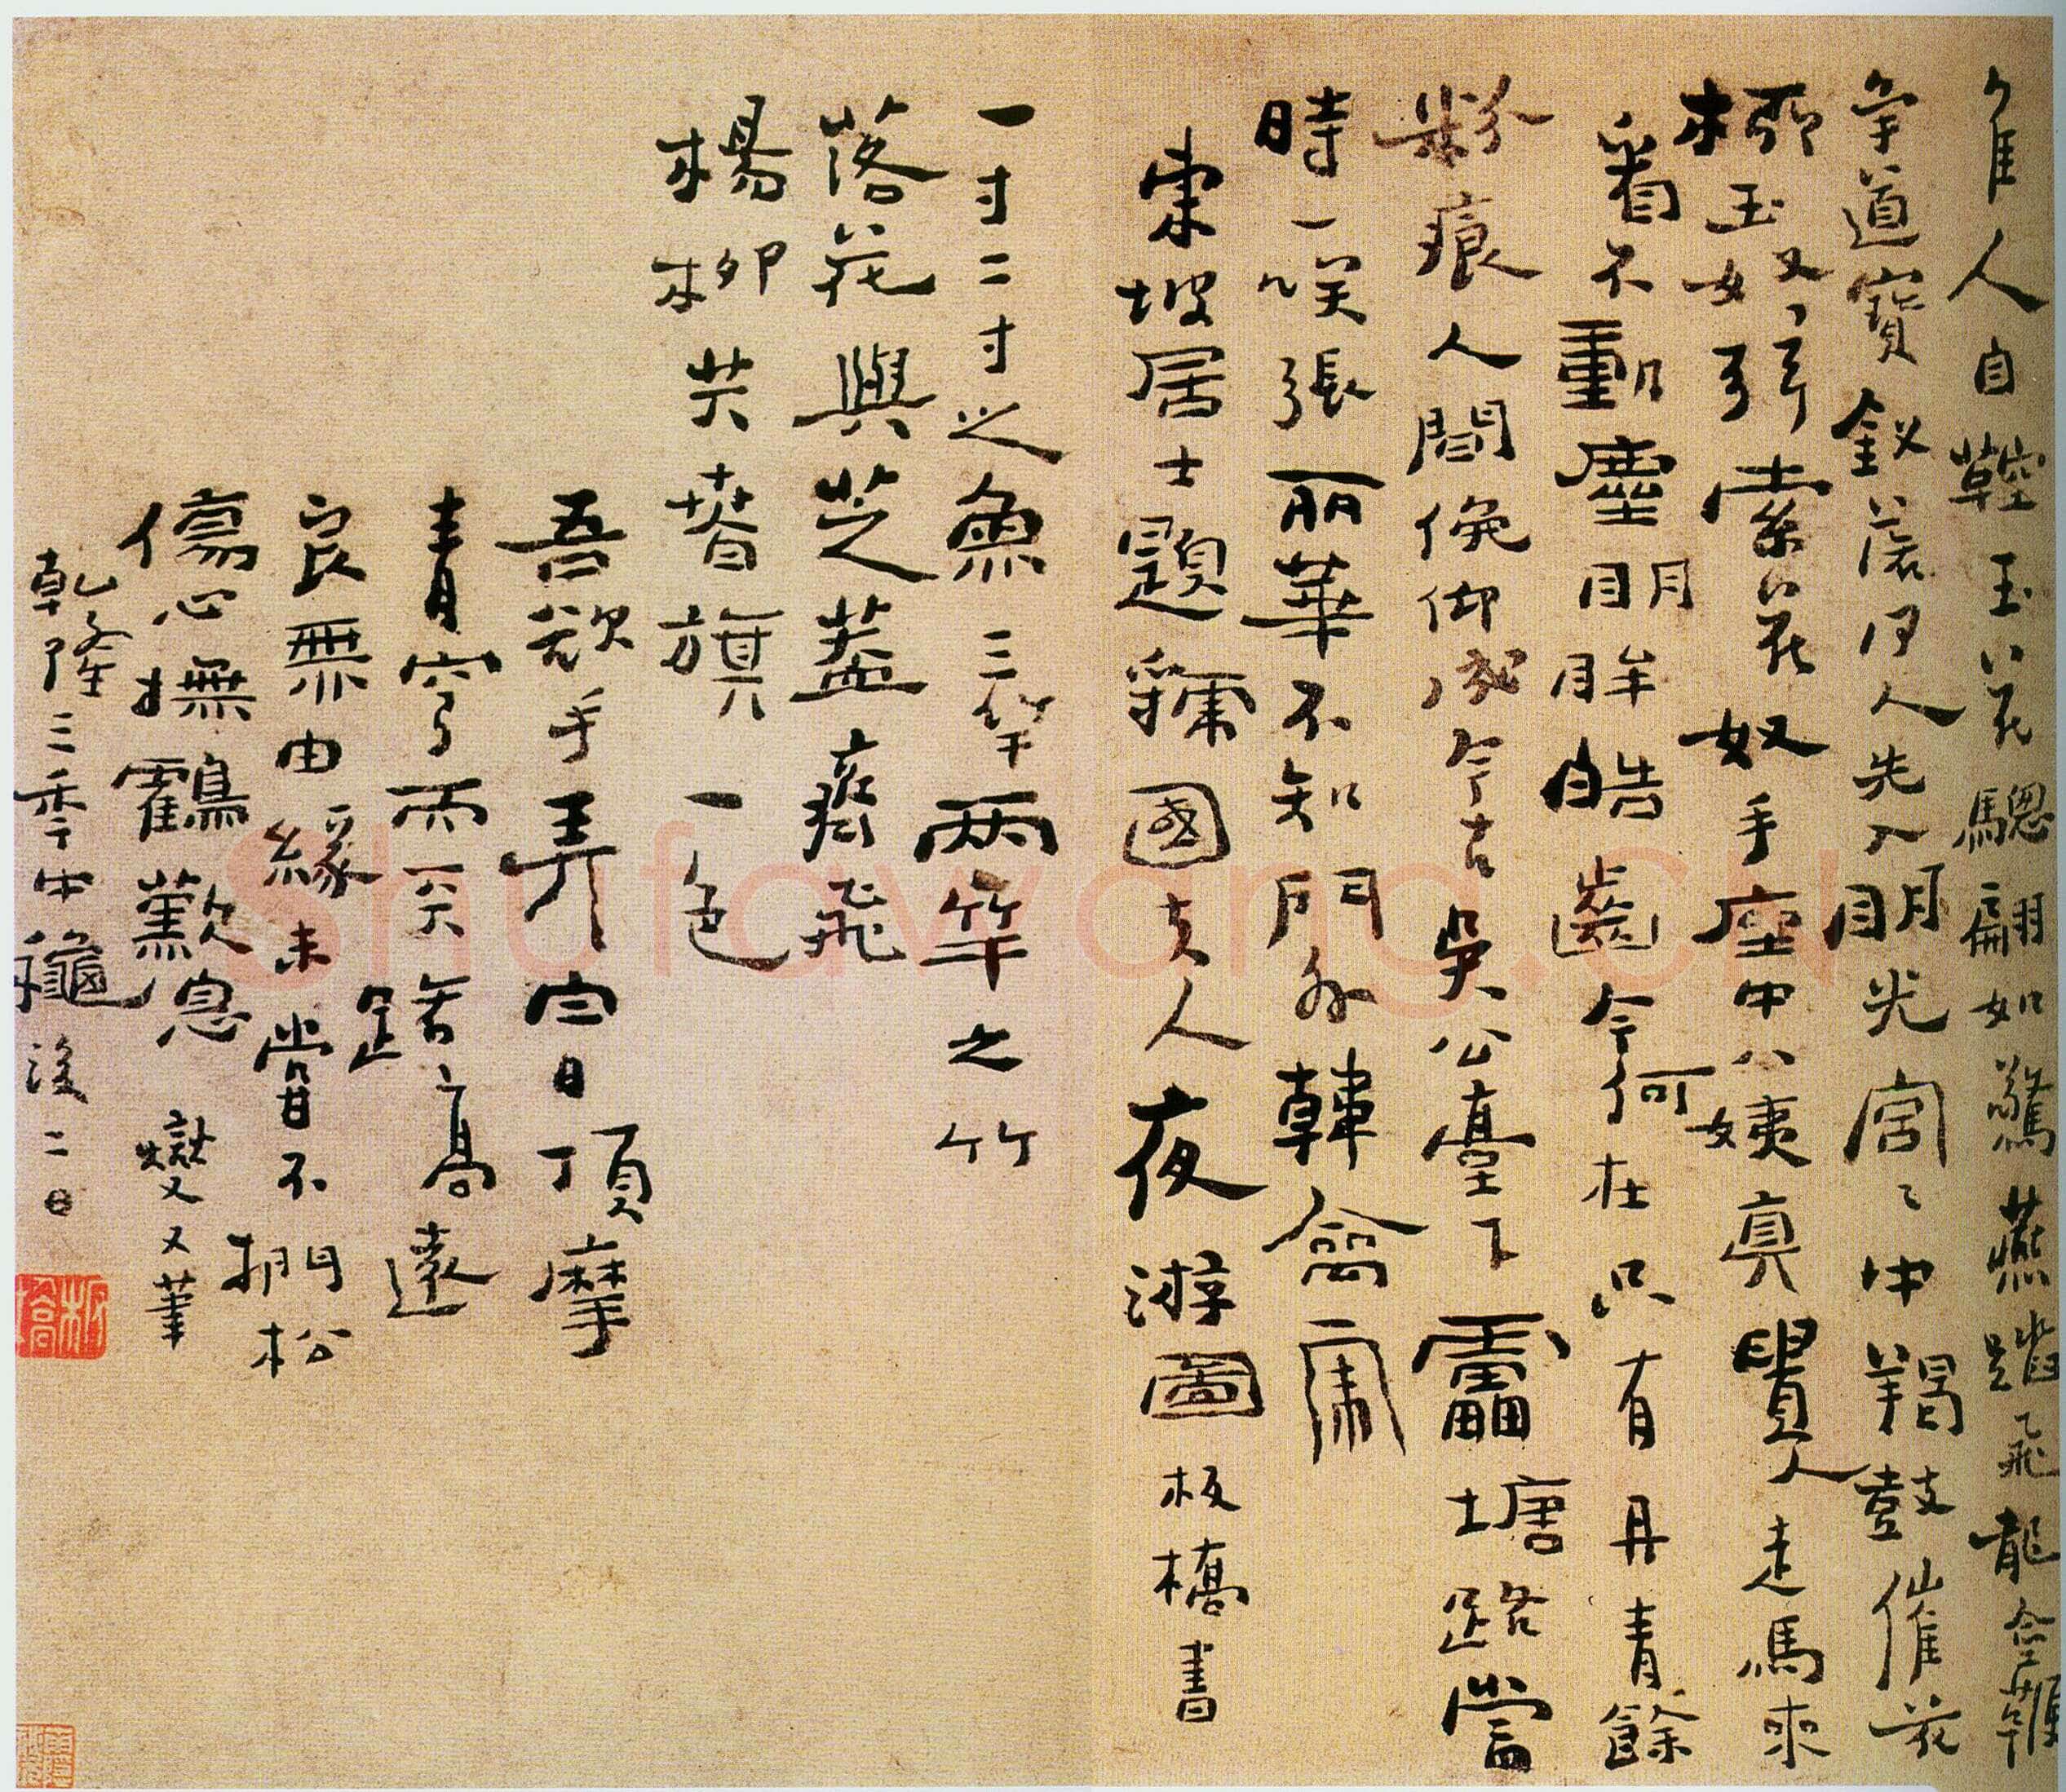 佳人自鞚玉花驄翩如驚燕蹋飛龍金鞭
爭道寶釵落何人先入明光宮〻中羯鼓催花
柳玉奴弦索花奴手座中八姨真貴人走馬來
看不動塵明眸皓齒今何在只有丹青餘
粉痕人間俛仰成今古吳公臺下雷塘路當
時一咲張丽華不知門外韓禽虎
東坡居士題虢國夫人夜游圖 板橋書
一寸二寸之魚三竿兩竿之竹
落花與芝蓋齊飛
楊柳共春旗一色
吾欲手弄白日頂摩
青穹而天路高遠
良無由緣未嘗不捫松
傷心撫鶴歎息 燮又筆
乾隆三年中秋後二日
shufawang.CN